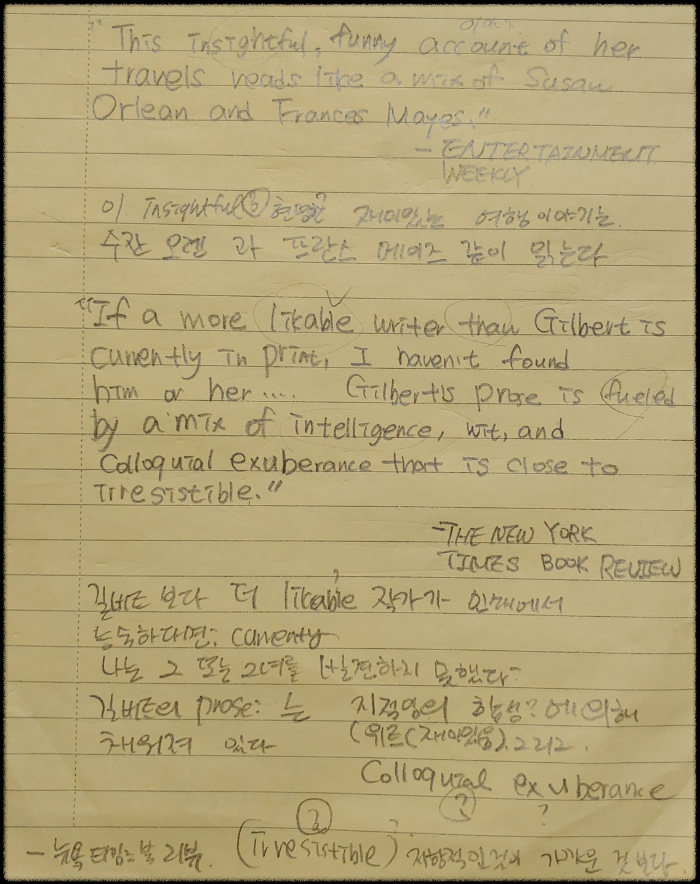 "This insightful, funny account of her
travels reads like a mix of Susan
Orlean and Frances Mayes."
- ENTERTAINMENT
WEEKLY
이 Insightful 재미있는 여행이야기는
수잔 오렌 과 프란스 메이즈 같이 읽는다
"If a more likable writer than Gilbert is
currently in print, I haven't found
him or her.... Gilbert's prose is fueled
by a mix of intelligence, wit, and
Colloquial exuberance that is close to
irresistible."
-THE NEW YORK
TIMES BOOK REVIEW
길버트 보다 더 likable 작가가 인쇄에서
능숙하다면: currenty
나는 그 또는 그녀를 발견하지 못했다.
길버트의 prose: 는 지적임의 합성? 에 의해
채워져 있다 (위트(재미있음). 그리고.
Colloquial exuberance
? ?
- 뉴욕 타임즈 북 리뷰. (irresistible) 저항적인 것에 가까운 것 보다.